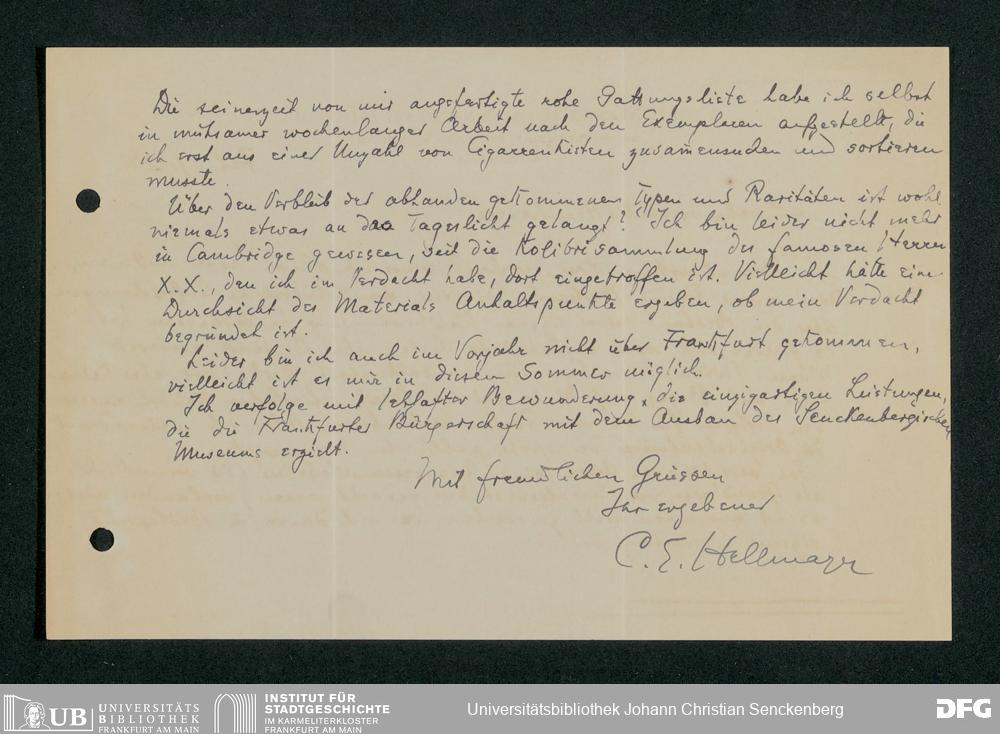 Die seinerzeit von mir angefertigte rohe Gattungsliste habe ich selbst
in mühsamer wochenlanger Arbeit nach den Exemplaren aufgestellt, die
ich erst aus einer Unzahl von Cigarrenkisten zusam̄ensuchen und sortieren
musste.
Über den Verbleib der abhanden gekommenen Typen und Raritäten ist wohl
niemals etwas an das Tageslicht gelangt? Ich bin leider nicht mehr
in Cambridge gewesen, seit die Kolibrisammlung des famosen Herrn
X.X., den ich im Verdacht habe, dort eingetroffen ist. Vielleicht hätte eine
Durchsicht des Materials Anhaltspunkte ergeben, ob mein Verdacht
begründet ist.
Leider bin ich auch im Vorjahr nicht über Frankfurt gekommen,
vielleicht ist es mir in diesem Sommer möglich.
Ich verfolge mit lebhafter Bewunderung die einzigartigen Leistungen,
die die Frankfurter Bürgerschaft mit dem Ausbau des Senckenbergischen
Museums erzielt.
Mit freundlichen Grüssen
Ihr ergebener
C. E. Hellmayr
UB UNIVERSITÄTS
BIBLIOTHEK
FRANKFURT AM MAIN
INSTITUT FÜR
STADTGESCHICHTE
IM KARMELITERKLOSTER
FRANKFURT AM MAIN
Universitätsbibliothek Johann Christian Senckenberg
DFG